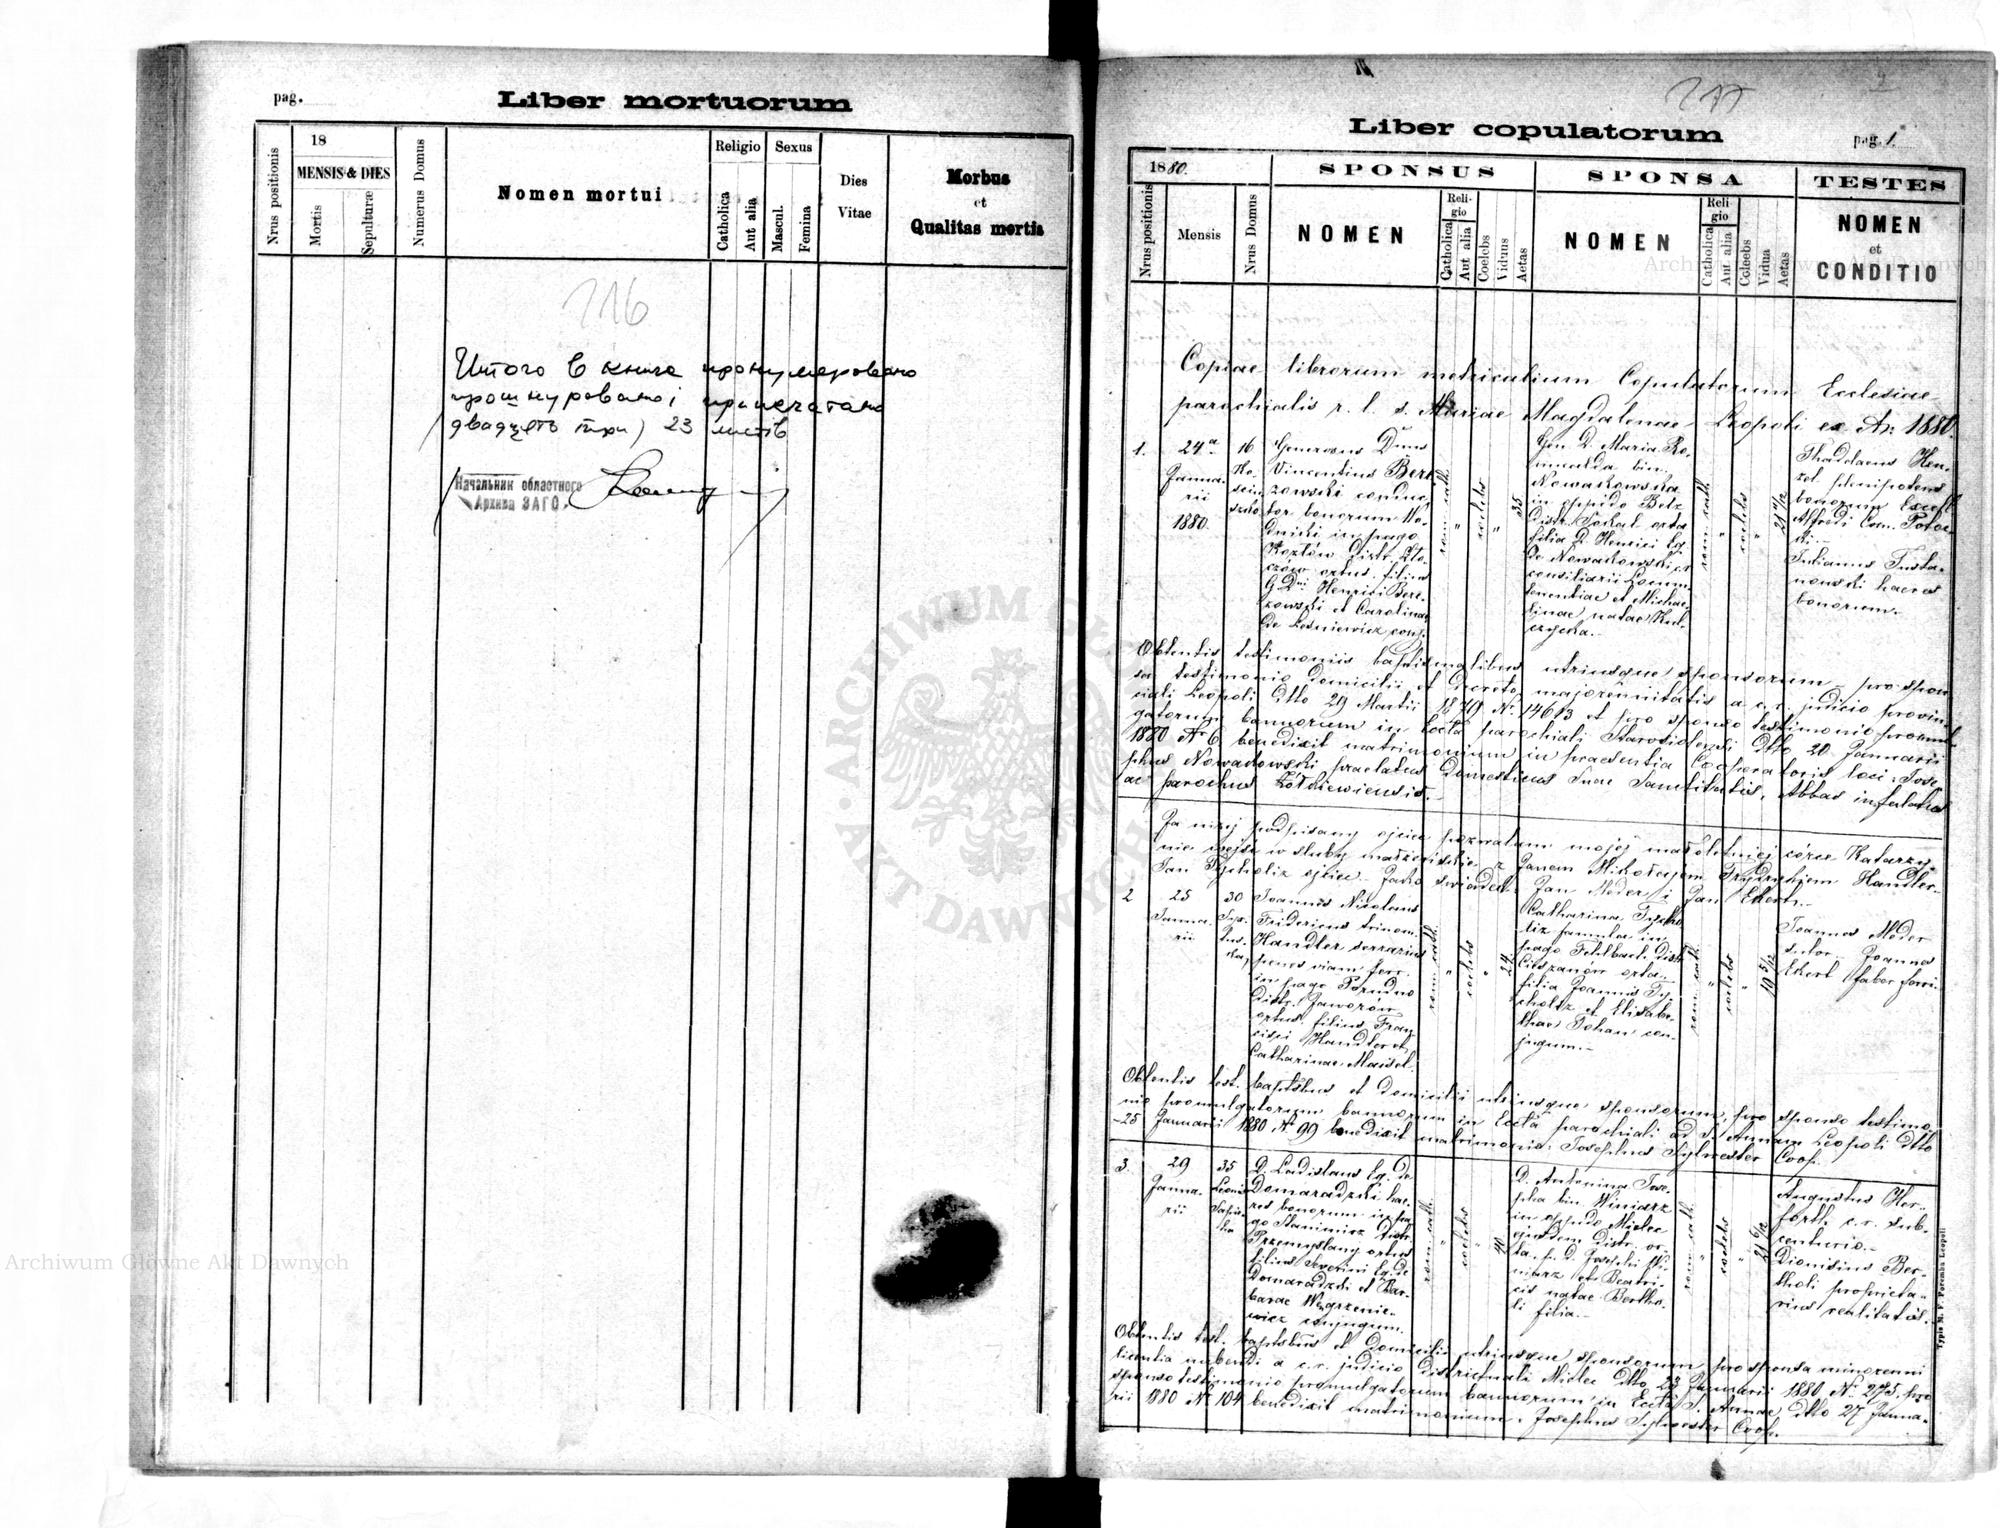 pag.
Liber mortuorum
Nrus positionis
18
MENSIS & DIES
Mortis
Sepulturæ
Numerus Domus
Nomen mortui
Religio
Catholica
Aut alia
Sexus
Mascul.
Femina
Dies
Vitae
Morbus
et
Qualitas mortis
216
Итого в книга пронумеровано
прошнуровано і припечатано
двадцять три) 23 листів
Начальник областного
Архива ЗАГС
217
2
Liber copulatorum
pag. 1.
Nrus positionis
1880.
Mensis
Nrus Domus
SPONSUS
NOMEN
Reli-
gio
Catholica
Aut alia
Coelebs
Viduus
Aetas
SPONSA
NOMEN
Reli-
gio
Catholica
Aut alia
Coleebs
Vidua
Aetas
TESTES
NOMEN
et
CONDITIO
Copiae librorum metricalium Copulatorum Ecclesiae
parochialis r. l. s. Mariae Magdalenae Leopoli ex An: 1880.
1.
24ª
Janua-
rii
1880.
16
Generosus Dnus
Vincentius Bere-
zowski conduc-
tor bonorum
in pago
Kozłów Distr. Zło-
czów ortus, filius
G. Dni Henrici Bere-
zowski et Carolinae
de Leśniewicz conj.
rom. cath.
"
coelebs
"
35
Gen. D. Maria Ro-
mualda bin.
Nowakowska
in oppido Belz
distr. Sokal orta
filia D. Henrici Eq.
de Nowakowski
consiliarii Locum-
tenentiae et Micha-
linae natae Kul-
czycka.-
rom. cath.
"
coelebs
"
21 11/12
Thaddaeus Hen-
zel plenipotens
bonorum Excell.
Alfredi Com. Potoc-
ki.-
Julianus Pusta-
nowski haeres
bonorum.-
Obtentis testimoniis baptismalibus utriusque sponsorum - pro spon-
sa testimonio domicilii et decreto majorennitatis a c. r. judicio provin-
ciali Leopoli dtto 29 Martii 1879 Nr. 14613 et pro sponso testimonio promul-
gatorum bannorum in Eccla parochiali Starosiolensi dtto 20 Januarii
1880 Nr 6 benedixit matrimonium in praesentia Cooperatoris loci: Jose-
phus Nowakowski praelatus Domesticus Suae Sanctitatis, Abbas infulatus
ac parochus Żółkiewiensis.-
Ja niżej podpisany ojciec pozwalam mojej małoletniej córce Katarzy-
nie wejść w śluby małżeńskie z Janem Mikołajem Frydrykiem Handler-
Jan Tycholiz ojciec - Jako świadek: Jan Meder i Jan Ekert.-
2
25
Janua-
rii
30
Joannes Nicolaus
Fridericus trinom.
Handler serrarius
penes viam ferr.
in pago Porudno
distr. Jaworów
ortus, filius Fran-
cisci Handler et
Catharinae Maisel.
rom. cath.
"
coelebs
"
24
Catharina Tycho-
liz famula in
pago Fehlbach Distr.
Cieszanów orta
filia Joannis Ty-
choliz et Elisabe-
thae Johan con-
jugum.-
rom. cath.
"
coelebs
"
19 5/12
Joannes Meder
sutor - Joannes
Ekert faber ferri-
Obtentis test. baptsbus et domicilii utriusque sponsorum, pro sponso testimo-
nio promulgatorum bannorum in Eccla parochiali ad S. Annam Leopoli dtto
25 Januarii 1880 Nr 99 benedixit matrimonio: Josephus Sylwester Coop.
3.
29
Janua-
rii
35
Leonis
Sapie-
ha
D. Ladislaus Eq. de
Domaradzki hae-
res bonorum in pa-
go Stanimirz distr.
Przemyslany ortus
filius Severini Eq. de
Domaradzki et Bar-
barae Węgrzenie-
wicz conjugum.
rom. cath.
"
coelebs
"
40
D. Antonina Jose-
pha bin. Winiarz
in oppido Mielec
ejusdem distr. or-
ta, f. D. Josephi Wi-
niarz et Beatri-
cis natae Bertho-
li filia.-
rom. cath.
"
coelebs
"
21 6/12
Augustus Her-
forth c. r. sub-
centurio.-
Dionisius Ber-
tholi proprieta-
rius realitatis.
Obtentis test. baptsbus et domicilii utriusque sponsorum, pro sponsa minorenni
licentia nubendi a c. r. judicio districtuali Mielec dtto 23 Januarii 1880 Nr. 275, pro
sponso testimonio promulgatorum bannorum in Eccla S. Annae dtto 27 Janua-
rii 1880 Nr 104 benedixit matrimonium: Josephus Sylwester Coop.
Typis M. F. Poremba Leopoli
ARCHIWUM GŁÓWNE AKT DAWNYCH
Archiwum Główne Akt Dawnych
Archiwum Główne Akt Dawnych